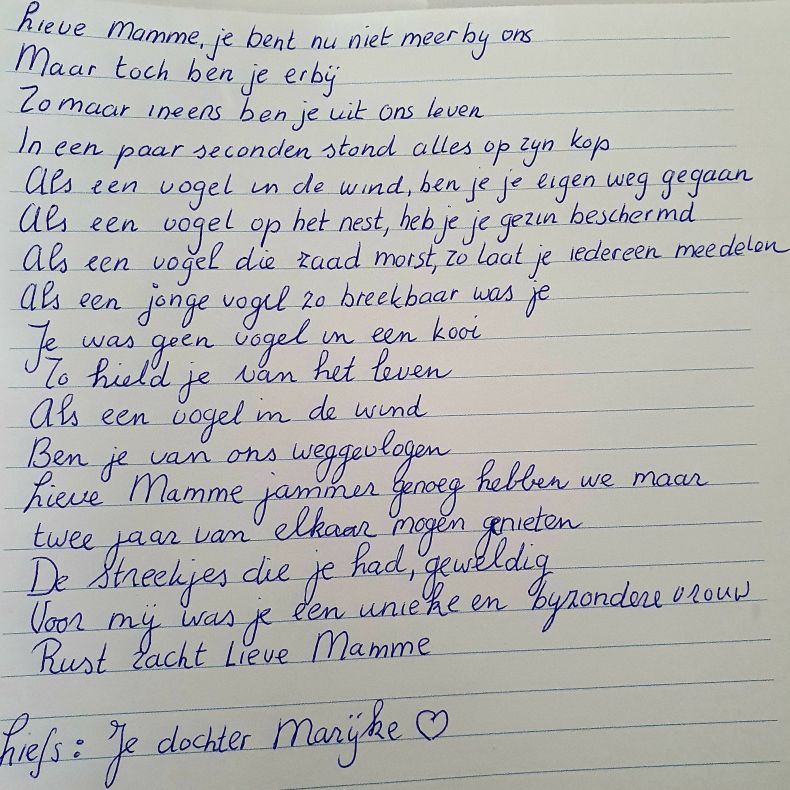 Lieve Mamme, je bent nu niet meer by ons
Maar toch ben je erbij
Zomaar ineens ben je uit ons leven
In een paar seconden stond alles op zyn kop
Als een vogel in de wind, ben je je eigen weg gegaan
Als een vogel op het nest, heb je je gezin beschermd
Als een vogel die zaad morst, zo laat je iedereen meedelen
Als een jonge vogel zo breekbaar was je
Je was geen vogel in een kooi
Zo hield je van het leven
Als een vogel in de wind
Ben je van ons weggevlogen
Lieve Mamme jammer genoeg hebben we maar
twee jaar van elkaar mogen genieten
De streekjes die je had, geweldig
Voor mij was je een unieke en byzondere vrouw
Rust zacht Lieve Mamme
Liefs: Je dochter Marijke ♡